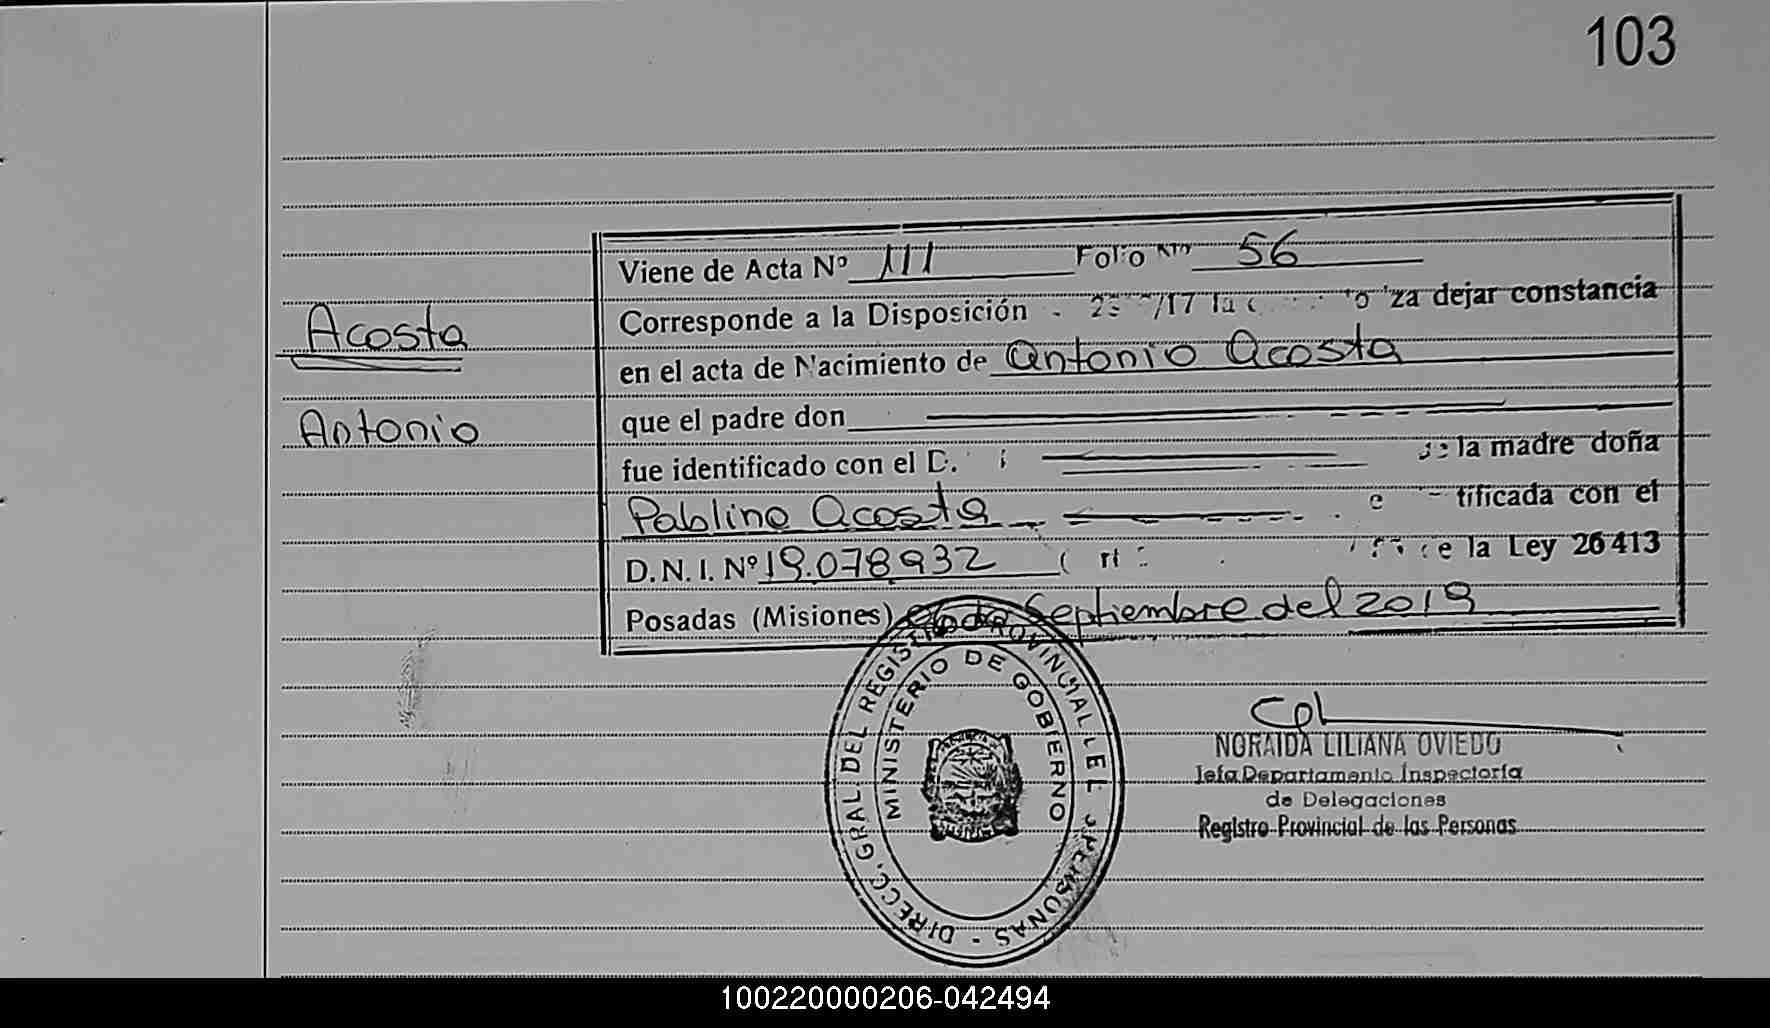 103
Viene de Acta Nº 111 Folio Nro 56
Corresponde a la Disposición /17 dejar constancia
Acosta
en el acta de Nacimiento de Antonio Acosta
que el padre don
Antonio
fue identificado con el D. la madre doña
Pablina Acosta tificada con el
D.N.I. Nº 19.078932 de la Ley 26413
Posadas (Misiones) 06 de Septiembre del 2019
DIRECC. GRAL DEL REGISTRO PROVINCIAL DE PERSONAS -
MINISTERIO DE GOBIERNO
NORAIDA LILIANA OVIEDO
Jefa Departamento Inspectoría
de Delegaciones
Registro Provincial de las Personas
100220000206-042494